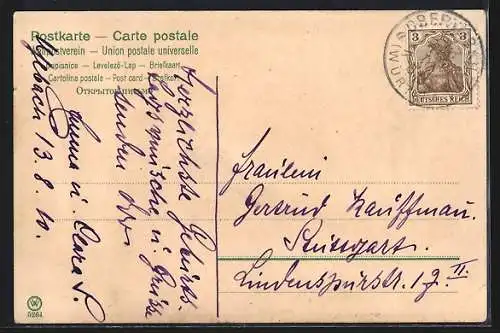 Postkarte — Carte postale
Weltpostverein — Union postale universelle
Dopisnice — Levelező-Lap — Briefkaart
Cartolina postale — Post card — Brefkort
Открытое письмо
3 3
DEUTSCHES REICH
Herzlichste Geburts-
tagswünsche u. Grüsse
senden Dir
Emma u. Clara S.
13. 8. 10.
Fräulein
Gertrud Kauffmann.
Stuttgart.
Lindenspürstr. 17. II.
5261